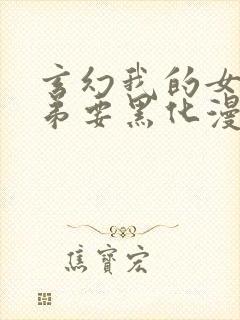 玄幻我的女
弟要黑化漫
焦寶宏